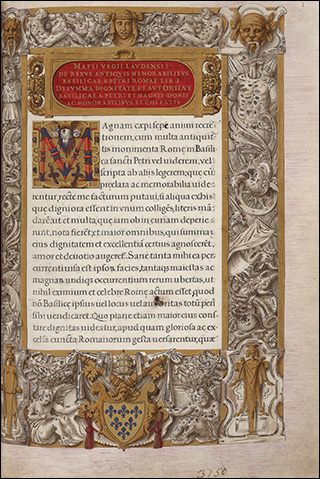 MAPEI VEGII LAVDENSIS
DE REBVS ANTIQVIS MEMORABILIBVS
BASILICAE S. PETRI ROMAE LIB. I.
DE SVMMA DIGNITATE ET AVTORITATE
BASILICAE S. PETRI ET MAGNIS DONIS
AC HONORABILIBVS EI COLLATIS
Magnam cæpi sepe animi recre
tionem, cum multa antiquita
tis monimenta Rome in Basili
ca sancti Petri vel viderem, vel
scripta ab aliis legerem; que cū
preclara ac memorabilia uide
rentur, recte me facturum putaui, si aliqua ex his
que digniora essent in vnum colligēs, literis mā
darē: ut et multa, que iam ob in curiam deperie
runt, nota fierēt, et maior omnibus, qui summa
ius dignitatem et excellentiā certius agnoscerēt,
amor et deuotio augeres. Sane tanta mihi ea per
currenti uisa est ipsoȝ facies, tantaqȝ maiestas ac
magnan undiqȝ occurrentium rerum ubertas, ut
nihil eximium et celebre Rome actum esset quod
nō Basilicę ipsius uel locus vel autoritas totū perl
sibi vendicaret. Quo plane etiam maior eius cons
tare dignitas uideatur, apud quam gloriosa ac ex
celsa cuncta Romanorum gesta uersarentur, quæ
3750